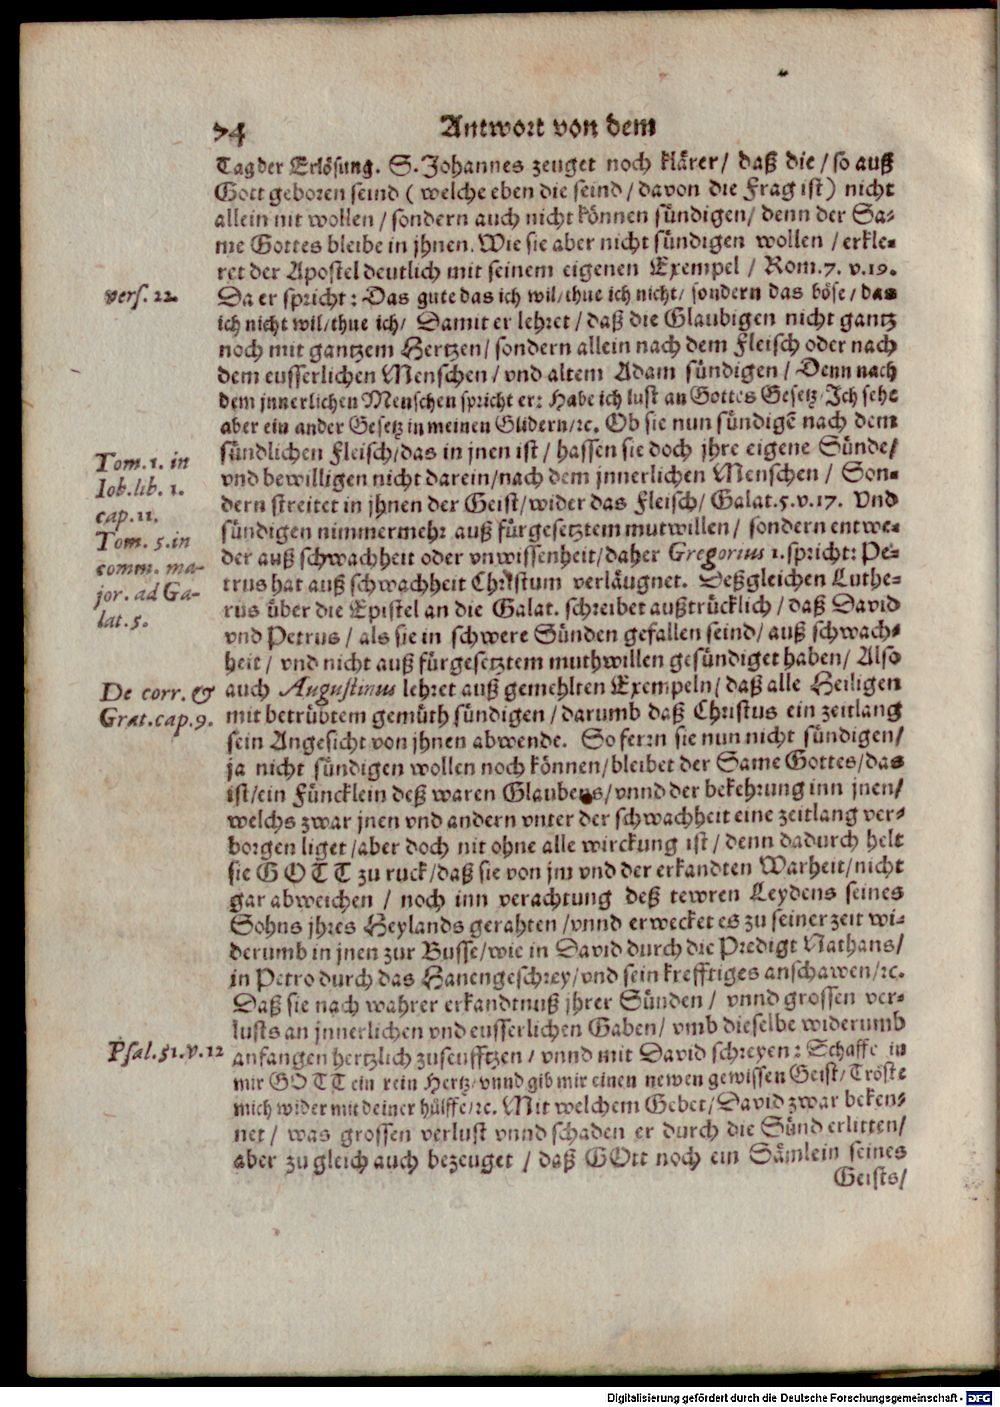 74 Antwort von dem
Tag der Erlösung. S. Johannes zeuget noch klärer/ daß die / so auß
Gott geboren seind ( welche eben die seind / davon die Frag ist) nicht
allein nit wollen / sondern auch nicht können sündigen/ denn der Sa-
me Gottes bleibe in jhnen. Wie sie aber nicht sündigen wollen / erkle-
ret der Apostel deutlich mit seinem eigenen Exempel / Rom. 7. v. 19.
vers. 22.
Da er spricht: Das gute das ich wil/ thue ich nicht/ sondern das böse/ das
ich nicht wil/ thue ich/ Damit er lehret / daß die Glaubigen nicht gantz
noch mit gantzem Hertzen/ sondern allein nach dem Fleisch oder nach
dem eusserlichen Menschen / vnd altem Adam sündigen / Denn nach
dem jnnerlichen Menschen spricht er: Habe ich lust an Gottes Gesetz/ Ich sehe
aber ein ander Gesetz in meinen Glidern/ ꝛc. Ob sie nun sündigē nach dem
Tom. 1. in
Iob. lib. 1.
cap. 11.
Tom. 5. in
comm. ma-
jor. ad Ga-
lat. 5.
sündlichen Fleisch/ das in jnen ist / hassen sie doch jhre eigene Sünde/
vnd bewilligen nicht darein/ nach dem jnnerlichen Menschen / Son-
dern streitet in jhnen der Geist/ wider das Fleisch/ Galat. 5. v. 17. Vnd
sündigen nimmermehr auß fürgesetztem mutwillen / sondern entwe-
der auß schwachheit oder vnwissenheit/ daher Gregorius 1. spricht: Pe-
trus hat auß schwachheit Christum verläugnet. Deßgleichen Luthe-
rus über die Epistel an die Galat. schreibet außtrücklich / daß David
vnd Petrus / als sie in schwere Sünden gefallen seind/ auß schwach-
heit / vnd nicht auß fürgesetztem muthwillen gesündiget haben/ Also
De corr. &
Grat. cap. 9.
auch Augustinus lehret auß gemehlten Exempeln/ daß alle Heiligen
mit betrübtem gemüth sündigen / darumb daß Christus ein zeitlang
sein Angesicht von jhnen abwende. So ferrn sie nun nicht sündigen/
ja nicht sündigen wollen noch können/ bleibet der Same Gottes/ das
ist/ ein Füncklein deß waren Glaubens/ vnnd der bekehrung inn jnen/
welchs zwar jnen vnd andern vnter der schwachheit eine zeitlang ver-
borgen liget / aber doch nit ohne alle wirckung ist / denn dadurch helt
sie GOTT zu ruck/ daß sie von jm vnd der erkandten Warheit/ nicht
gar abweichen / noch inn verachtung deß tewren Leydens seines
Sohns jhres Heylands gerahten / vnnd erwecket es zu seiner zeit wi-
derumb in jnen zur Busse/ wie in David durch die Predigt Nathans/
in Petro durch das Hanengeschrey/ vnd sein krefftiges anschawen/ ꝛc.
Daß sie nach wahrer erkandtnuß jhrer Sünden / vnnd grossen ver-
lusts an jnnerlichen vnd eusserlichen Gaben/ vmb dieselbe widerumb
Psal. 51. v. 12
anfangen hertzlich zuseufftzen / vnnd mit David schreyen: Schaffe in
mir GOTT ein rein Hertz/ vnnd gib mir einen newen gewissen Geist/ Tröste
mich wider mit deiner hülffe/ ꝛc. Mit welchem Gebet/ David zwar beken-
net / was grossen verlust vnnd schaden er durch die Sünd erlitten/
aber zu gleich auch bezeuget / daß GOtt noch ein Sämlein seines
Geists/
Digitalisierung gefördert durch die Deutsche Forschungsgemeinschaft - DFG